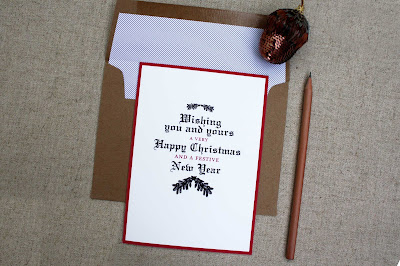 Wishing
you and yours
A VERY
Happy Christmas
AND A FESTIVE
New Year